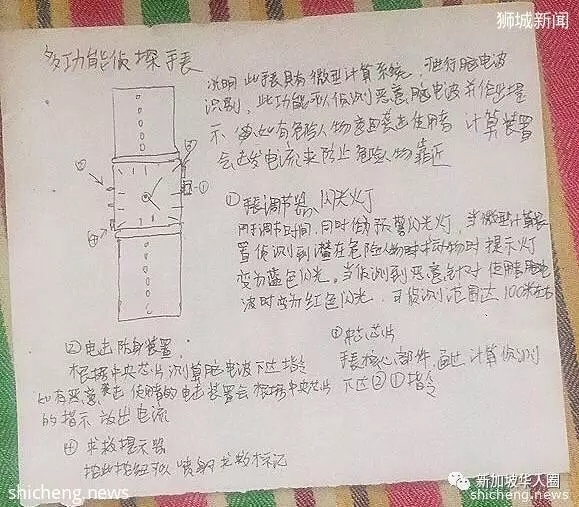 狮城新闻
多功能侦探手表
说明 此手表具有微型计算系统，进行脑电波
识别，此功能可以侦测恶意脑电波并作出提
示，如有危险人物意图袭击使用者 计算装置
会达发电流来防止危险人物靠近
① 手表调节器、闪光灯
用于调节时间，同时作预警闪光灯，当微型计算装
置侦测到潜在危险人物时 提示灯
变为蓝色闪光。当侦测到恶意针对使用者脑电
波时变为红色闪光，可侦测范围达100米左右
② 电击防身装置
根据中央芯片 测算脑电波下达指令
如有恶意袭击使用者的电击装置会根据中央芯片
的指示放出电流
③ 中央芯片
手表核心部件，通过计算侦测
下达②①指令
④ 求救提示器
按此按钮可以喷射求救标记
①
②
③
④
shicheng.news
新加坡华人圈
shicheng.news